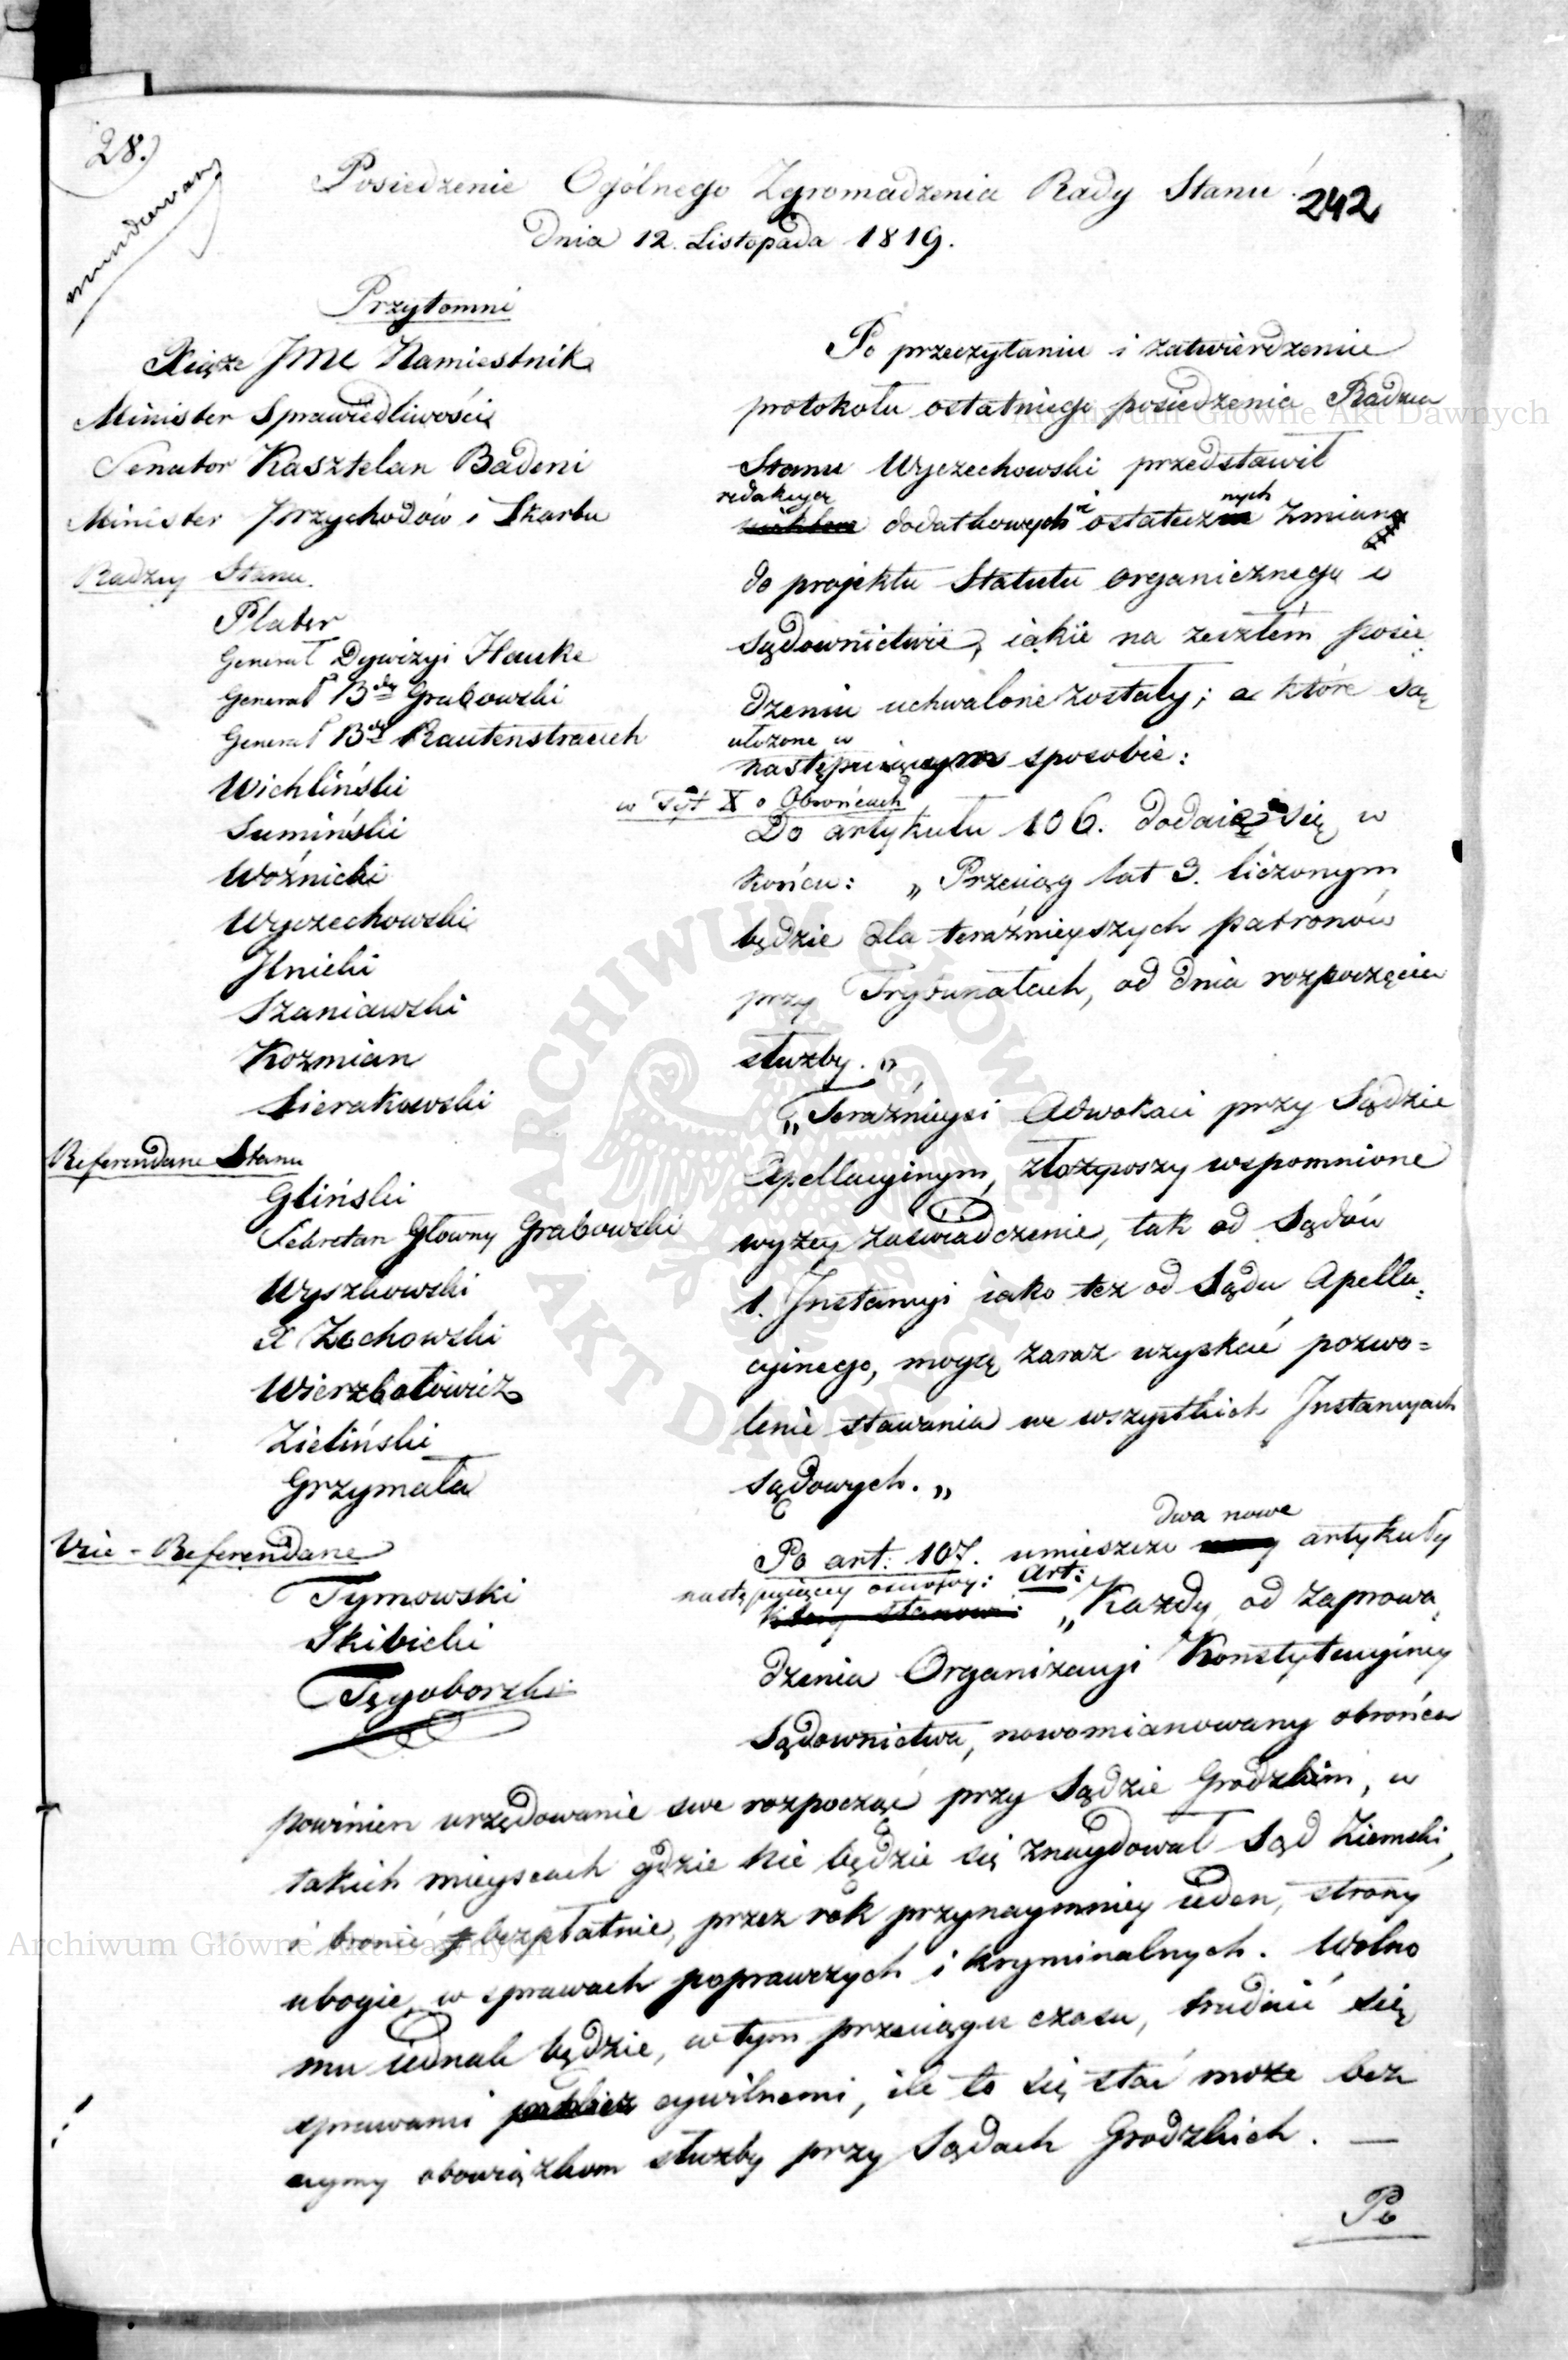 28.)
mundowany
Posiedzenie Ogólnego Zgromadzenia Rady Stanu
242
Dnia 12. Listopada 1819.
Przytomni
Xiąże JMC Namiestnik
Minister Sprawiedliwości
Senator Kasztelan Badeni
Minister Przychodów i Skarbu
Radzcy Stanu.
Plater
Generał Dywizyi Hauke
Generał Bdy Grabowski
Generał Bdy Rautenstrauch
Wichliński
Sumiński
Woźnicki
Wyczechowski
Ilnicki
Szaniawski
Kozmian
Sierakowski
Referendarze Stanu
Gliński
Sekretarz Główny Grabowski
Wyszkowski
X Zochowski
Wierzbołowicz
Zieliński
Grzymała
Vice-Referendarze
Tymowski
Skibicki
Tęgoborski
Po przeczytaniu i zatwierdzeniu
protokołu ostatniego posiedzenia Radzca
Stanu Wyczechowski przedstawił
redakcyą
dodatkowych i ostatecznych zmian
do projektu Statutu organicznego o
sądownictwie, iakie na zeszłém posie-
dzeniu uchwalone zostały; a które są
ułożone w
następuiącym sposobie:
w Tyt X o Obrońcach
Do artykułu 106. dodaie się w
końcu: „Przeciąg lat 3. liczonym
będzie dla teraźnieyszych patronów
przy Trybunałach, od dnia rozpoczęcia
służby.„
„Teraźnieysi Adwokaci przy Sądzie
Apellacyinym, złożywszy wspomnione
wyżey zaświadczenie, tak od Sądów
1. Instancyi iako też od Sądu Apella-
cyinego, mogą zaraz uzyskać pozwo-
lenie stawania we wszystkich Instancyach
sądowych.„
dwa nowe
Po art: 107. umieszcza artykuły
następuiącey osnowy: Art:
„Każdy, od zaprowa-
dzenia Organizacyi Konstytucyiney
Sądownictwa, nowomianowany obrońca
powinien urzędowanie swe rozpocząć przy Sądzie Grodzkim, w
takich mieyscach gdzie nie będzie się znaydował Sąd Ziemski,
i bronić bezpłatnie, przez rok przynaymniey ieden, strony
ubogie, w sprawach poprawczych i kryminalnych. Wolno
mu iednak będzie, w tym przeciągu czasu, trudnić się
sprawami cywilnemi, ile to się stać może bez
uymy obowiązkom służby przy Sądach Grodzkich. —
Po
Archiwum Główne Akt Dawnych
Archiwum Główne Akt Dawnych
ARCHIWUM GŁÓWNE AKT DAWNYCH